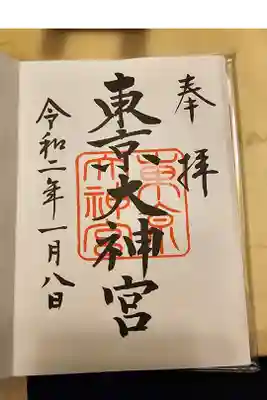 奉拝
東京大神宮
東京大神宮
令和二年一月八日